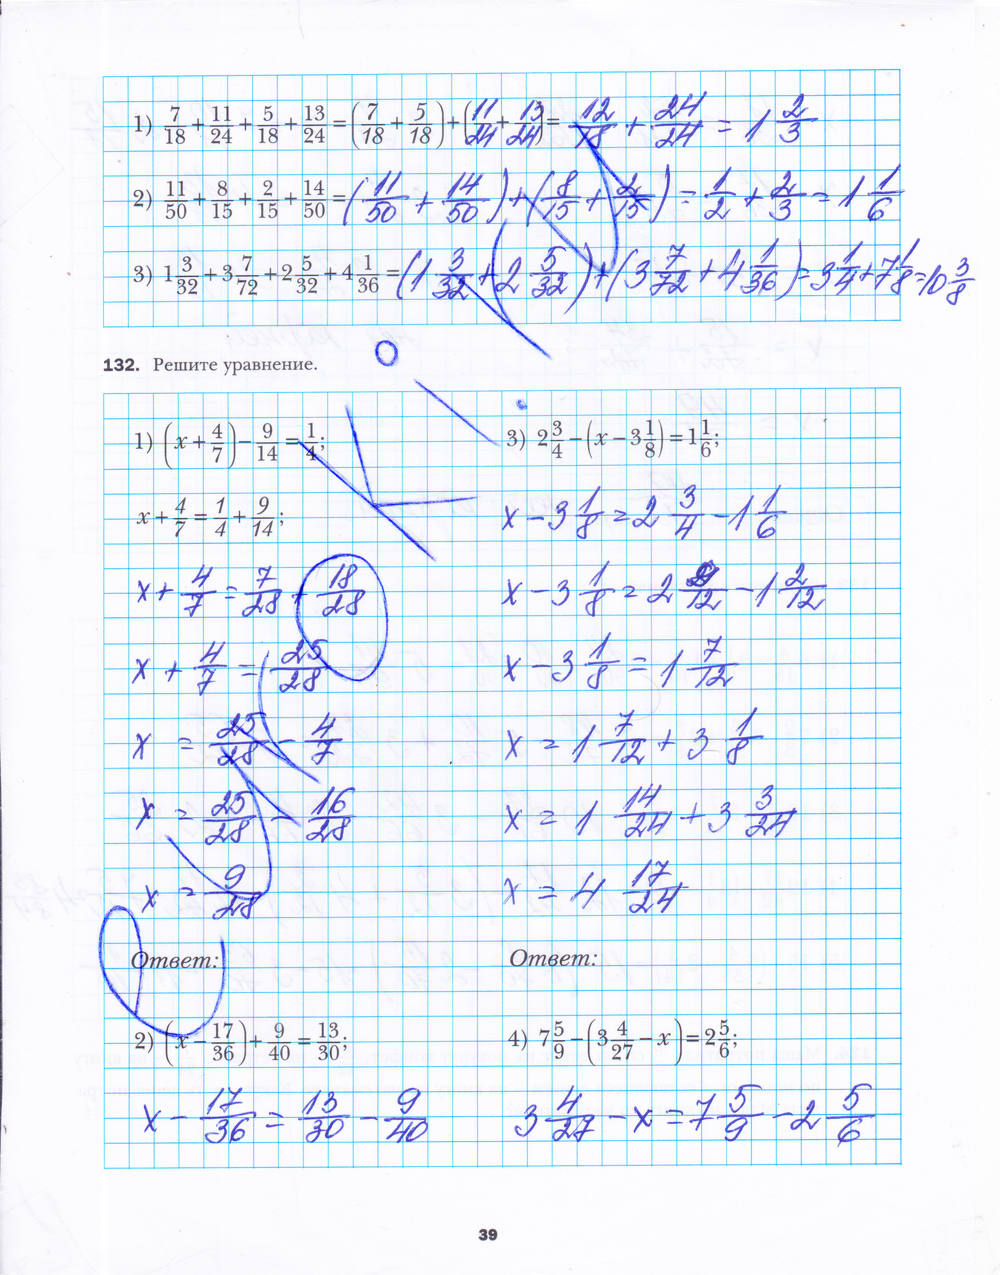 1) 7/18 + 11/24 + 5/18 + 13/24 = (7/18 + 5/18) + (11/24 + 13/24) = 12/18 + 24/24 = 1 2/3
2) 11/50 + 8/15 + 2/15 + 14/50 = (11/50 + 14/50) + (8/15 + 2/15) = 1/2 + 2/3 = 1 1/6
3) 1 3/32 + 3 7/72 + 2 5/32 + 4 1/36 = (1 3/32 + 2 5/32) + (3 7/72 + 4 1/36) = 3 1/4 + 7 1/8 = 10 3/8
132. Решите уравнение.
1) (x + 4/7) − 9/14 = 1/4;
x + 4/7 = 1/4 + 9/14;
x + 4/7 = 7/28 + 18/28
x + 4/7 = 25/28
x = 25/28 − 4/7
x = 25/28 − 16/28
x = 9/28
Ответ:
2) (x − 17/36) + 9/40 = 13/30;
x − 17/36 = 13/30 − 9/40
3) 2 3/4 − (x − 3 1/8) = 1 1/6;
x − 3 1/8 = 2 3/4 − 1 1/6
x − 3 1/8 = 2 9/12 − 1 2/12
x − 3 1/8 = 1 7/12
x = 1 7/12 + 3 1/8
x = 1 14/24 + 3 3/24
x = 4 17/24
Ответ:
4) 7 5/9 − (3 4/27 − x) = 2 5/6;
3 4/27 − x = 7 5/9 − 2 5/6
39